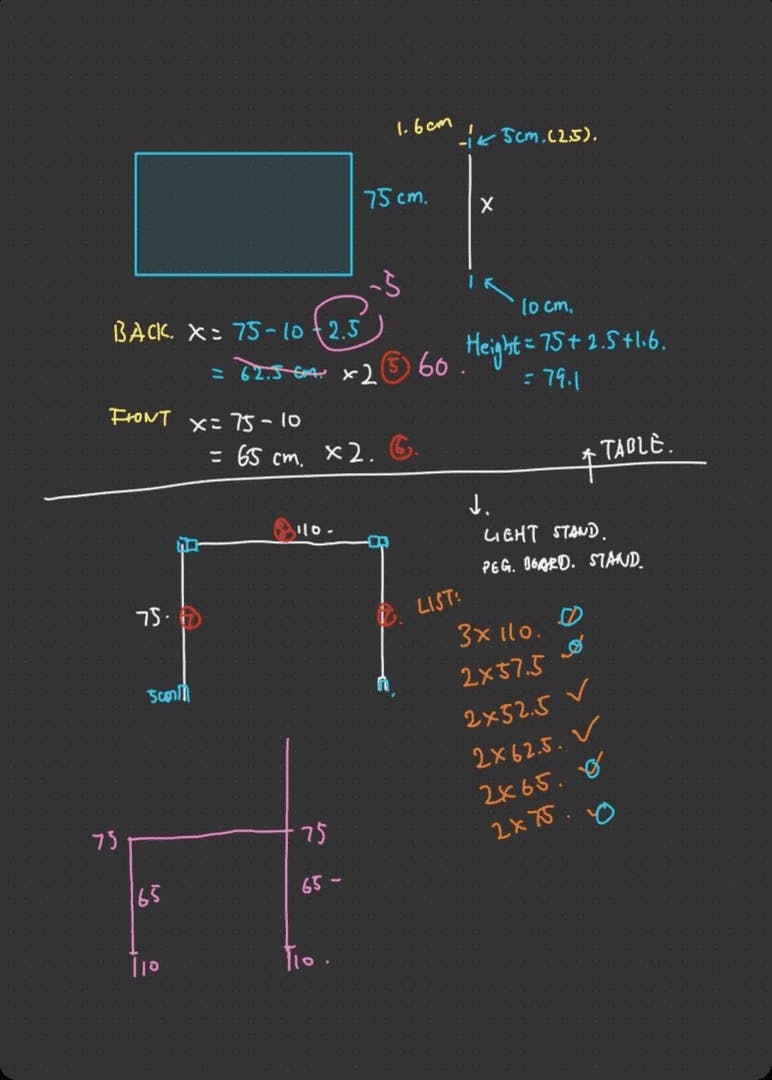 1.6cm
5cm.(2.5).
75 cm.
x
10 cm.
-5
BACK. x = 75-10-2.5
= 62.5 cm. x2 ⑤ 60.
Height = 75+2.5+1.6.
= 79.1
FRONT x = 75-10
= 65 cm. x2. ⑥.
TABLE.
LIGHT STAND.
PEG. BOARD. STAND.
110-
75.
5cm
LIST:
3x110.
2x57.5
2x52.5
2x62.5.
2x65.
2x75.
75
75
65
65-
10
10.